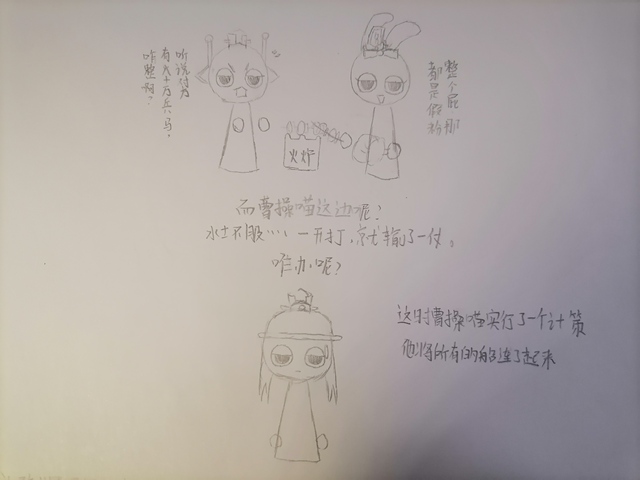 听说对方
有八十万兵马,
咋整啊?
整个屁那
都是假的
火炉
而曹操喵这边呢?
水土不服……一开打,就输了一仗。
咋办呢?
这时曹操喵实行了一个计策
他将所有的船连了起来